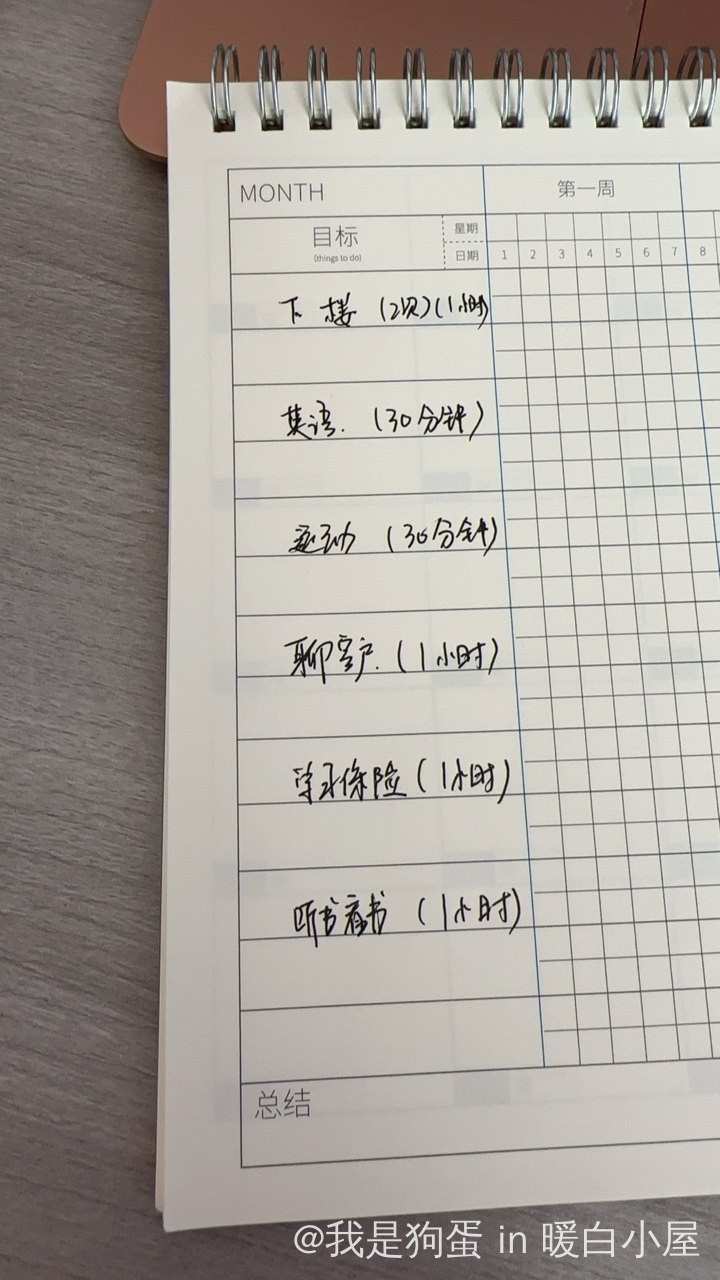 MONTH 第一周
目标 星期
(things to do) 日期 1 2 3 4 5 6 7 8
下楼 (2次)(1小时)
英语. (30分钟)
运动 (30分钟)
聊客户. (1小时)
学习保险 (1小时)
听书看书 (1小时)
总结
@我是狗蛋 in 暖白小屋